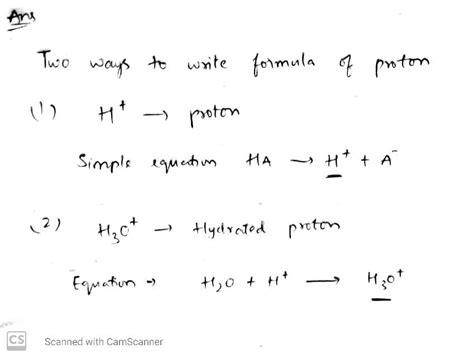 Ans
Two ways to write formula of proton
(1) H⁺ → proton
Simple equation HA → H⁺ + A⁻
(2) H₃O⁺ → Hydrated proton
Equation → H₂O + H⁺ → H₃O⁺
CS Scanned with CamScanner